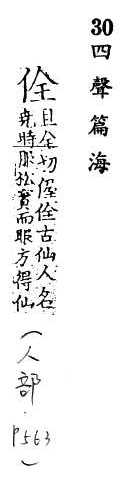 30四聲篇海
佺
且全切偓佺古仙人名
堯時服松實而眼方得仙
(人部．p563)